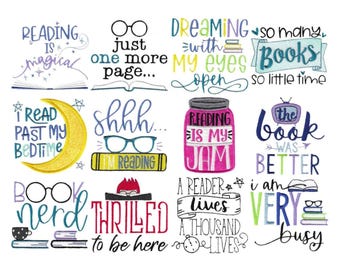 READING
IS
magical
just
one more
page...
DREAMING
with
MY EYES
open
so many
Books
so little time
I READ
PAST MY
BEDTIME
shhh...
I'M READING
READING
IS MY
JAM
the
book
WAS
BETTER
BOOK
nerd
THRILLED
to be here
A READER
lives
A THOUSAND
LIVES
i am
VERY
busy